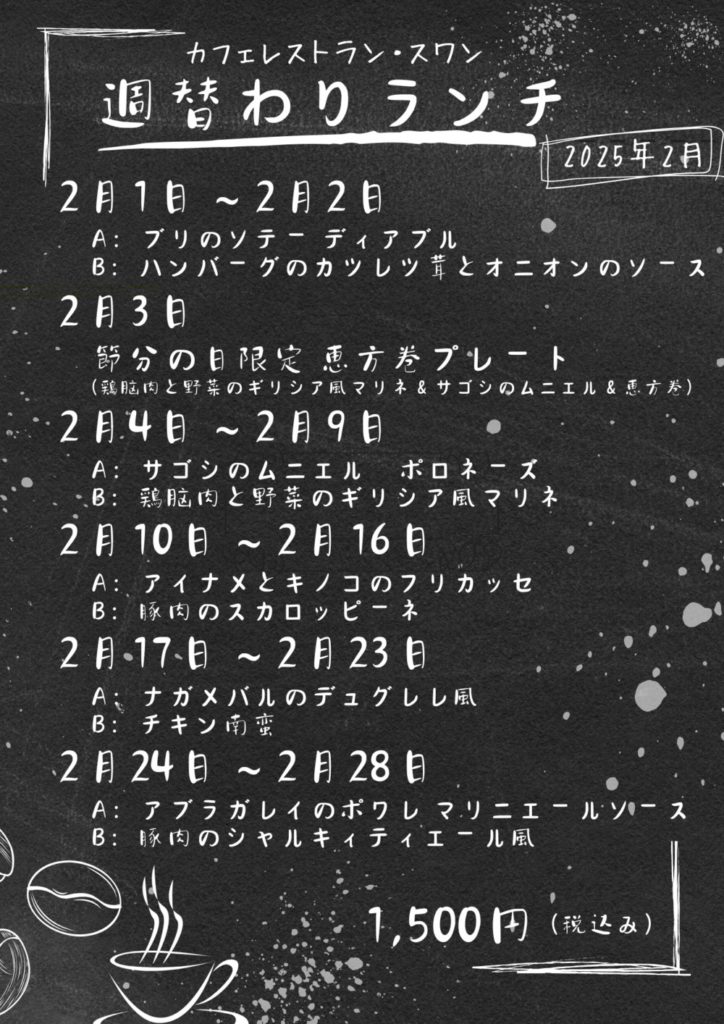 カフェレストラン・スワン
週替わりランチ
2025年2月
2月1日 ~2月2日
A: ブリのソテー ディアブル
B: ハンバーグのカツレツ茸とオニオンのソース
2月3日
節分の日限定 恵方巻プレート
(鶏脳肉と野菜のギリシア風マリネ&サゴシのムニエル&恵方巻)
2月4日 ~2月9日
A: サゴシのムニエル ポロネーズ
B: 鶏脳肉と野菜のギリシア風マリネ
2月10日 ~2月16日
A: アイナメとキノコのフリカッセ
B: 豚肉のスカロッピーネ
2月17日 ~2月23日
A: ナガメバルのデュグレレ風
B: チキン南蛮
2月24日 ~2月28日
A: アブラガレイのポワレ マリニエールソース
B: 豚肉のシャルキィティエール風
1,500円 (税込み)